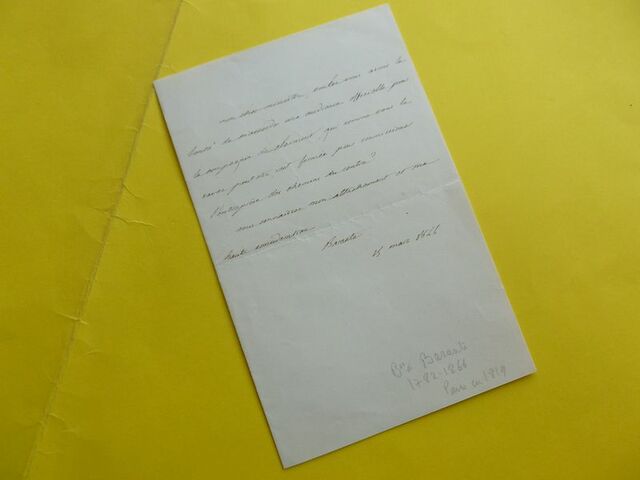 mon cher ministre, voulez vous avoir la
bonté de m'accorder une audience officielle pour
la compagnie de clermont, qui comme vous le
savez peut être, est formée pour soumissionner
l'entreprise des chemins du centre?
vous connaissez mon attachement et ma
haute considération Barante
15 mars 1844
Bon Barante
1782-1866
Pair en 1819